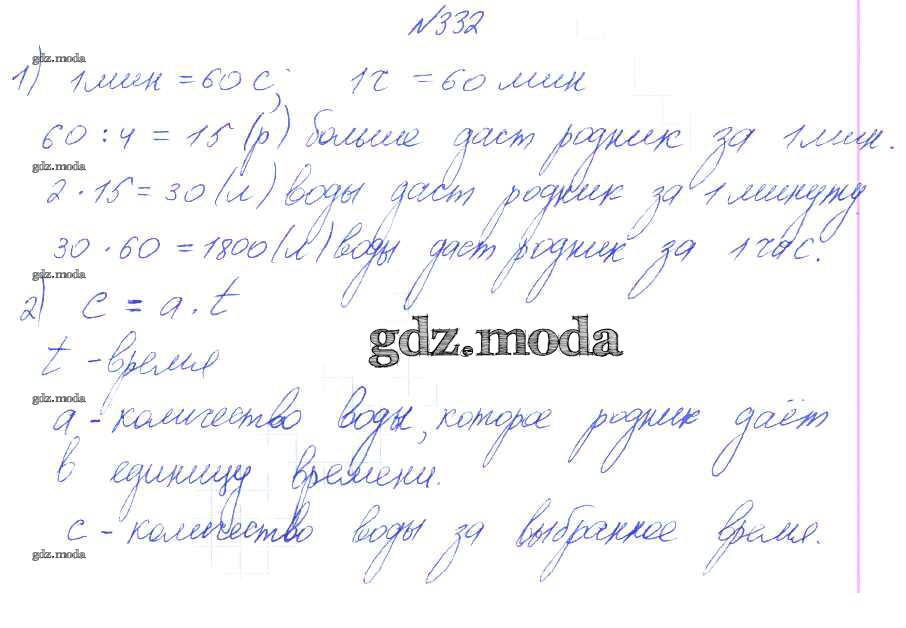 №332
gdz.moda
1) 1 мин = 60 с; 1ч = 60 мин
60 : 4 = 15 (р) больше даст родник за 1 мин.
gdz.moda
2 · 15 = 30 (л) воды даст родник за 1 минуту.
30 · 60 = 1800 (л) воды даст родник за 1 час.
gdz.moda
2) c = a · t
gdz.moda
t - время
gdz.moda
a - количество воды, которое родник даёт
в единицу времени.
c - количество воды за выбранное время.
gdz.moda